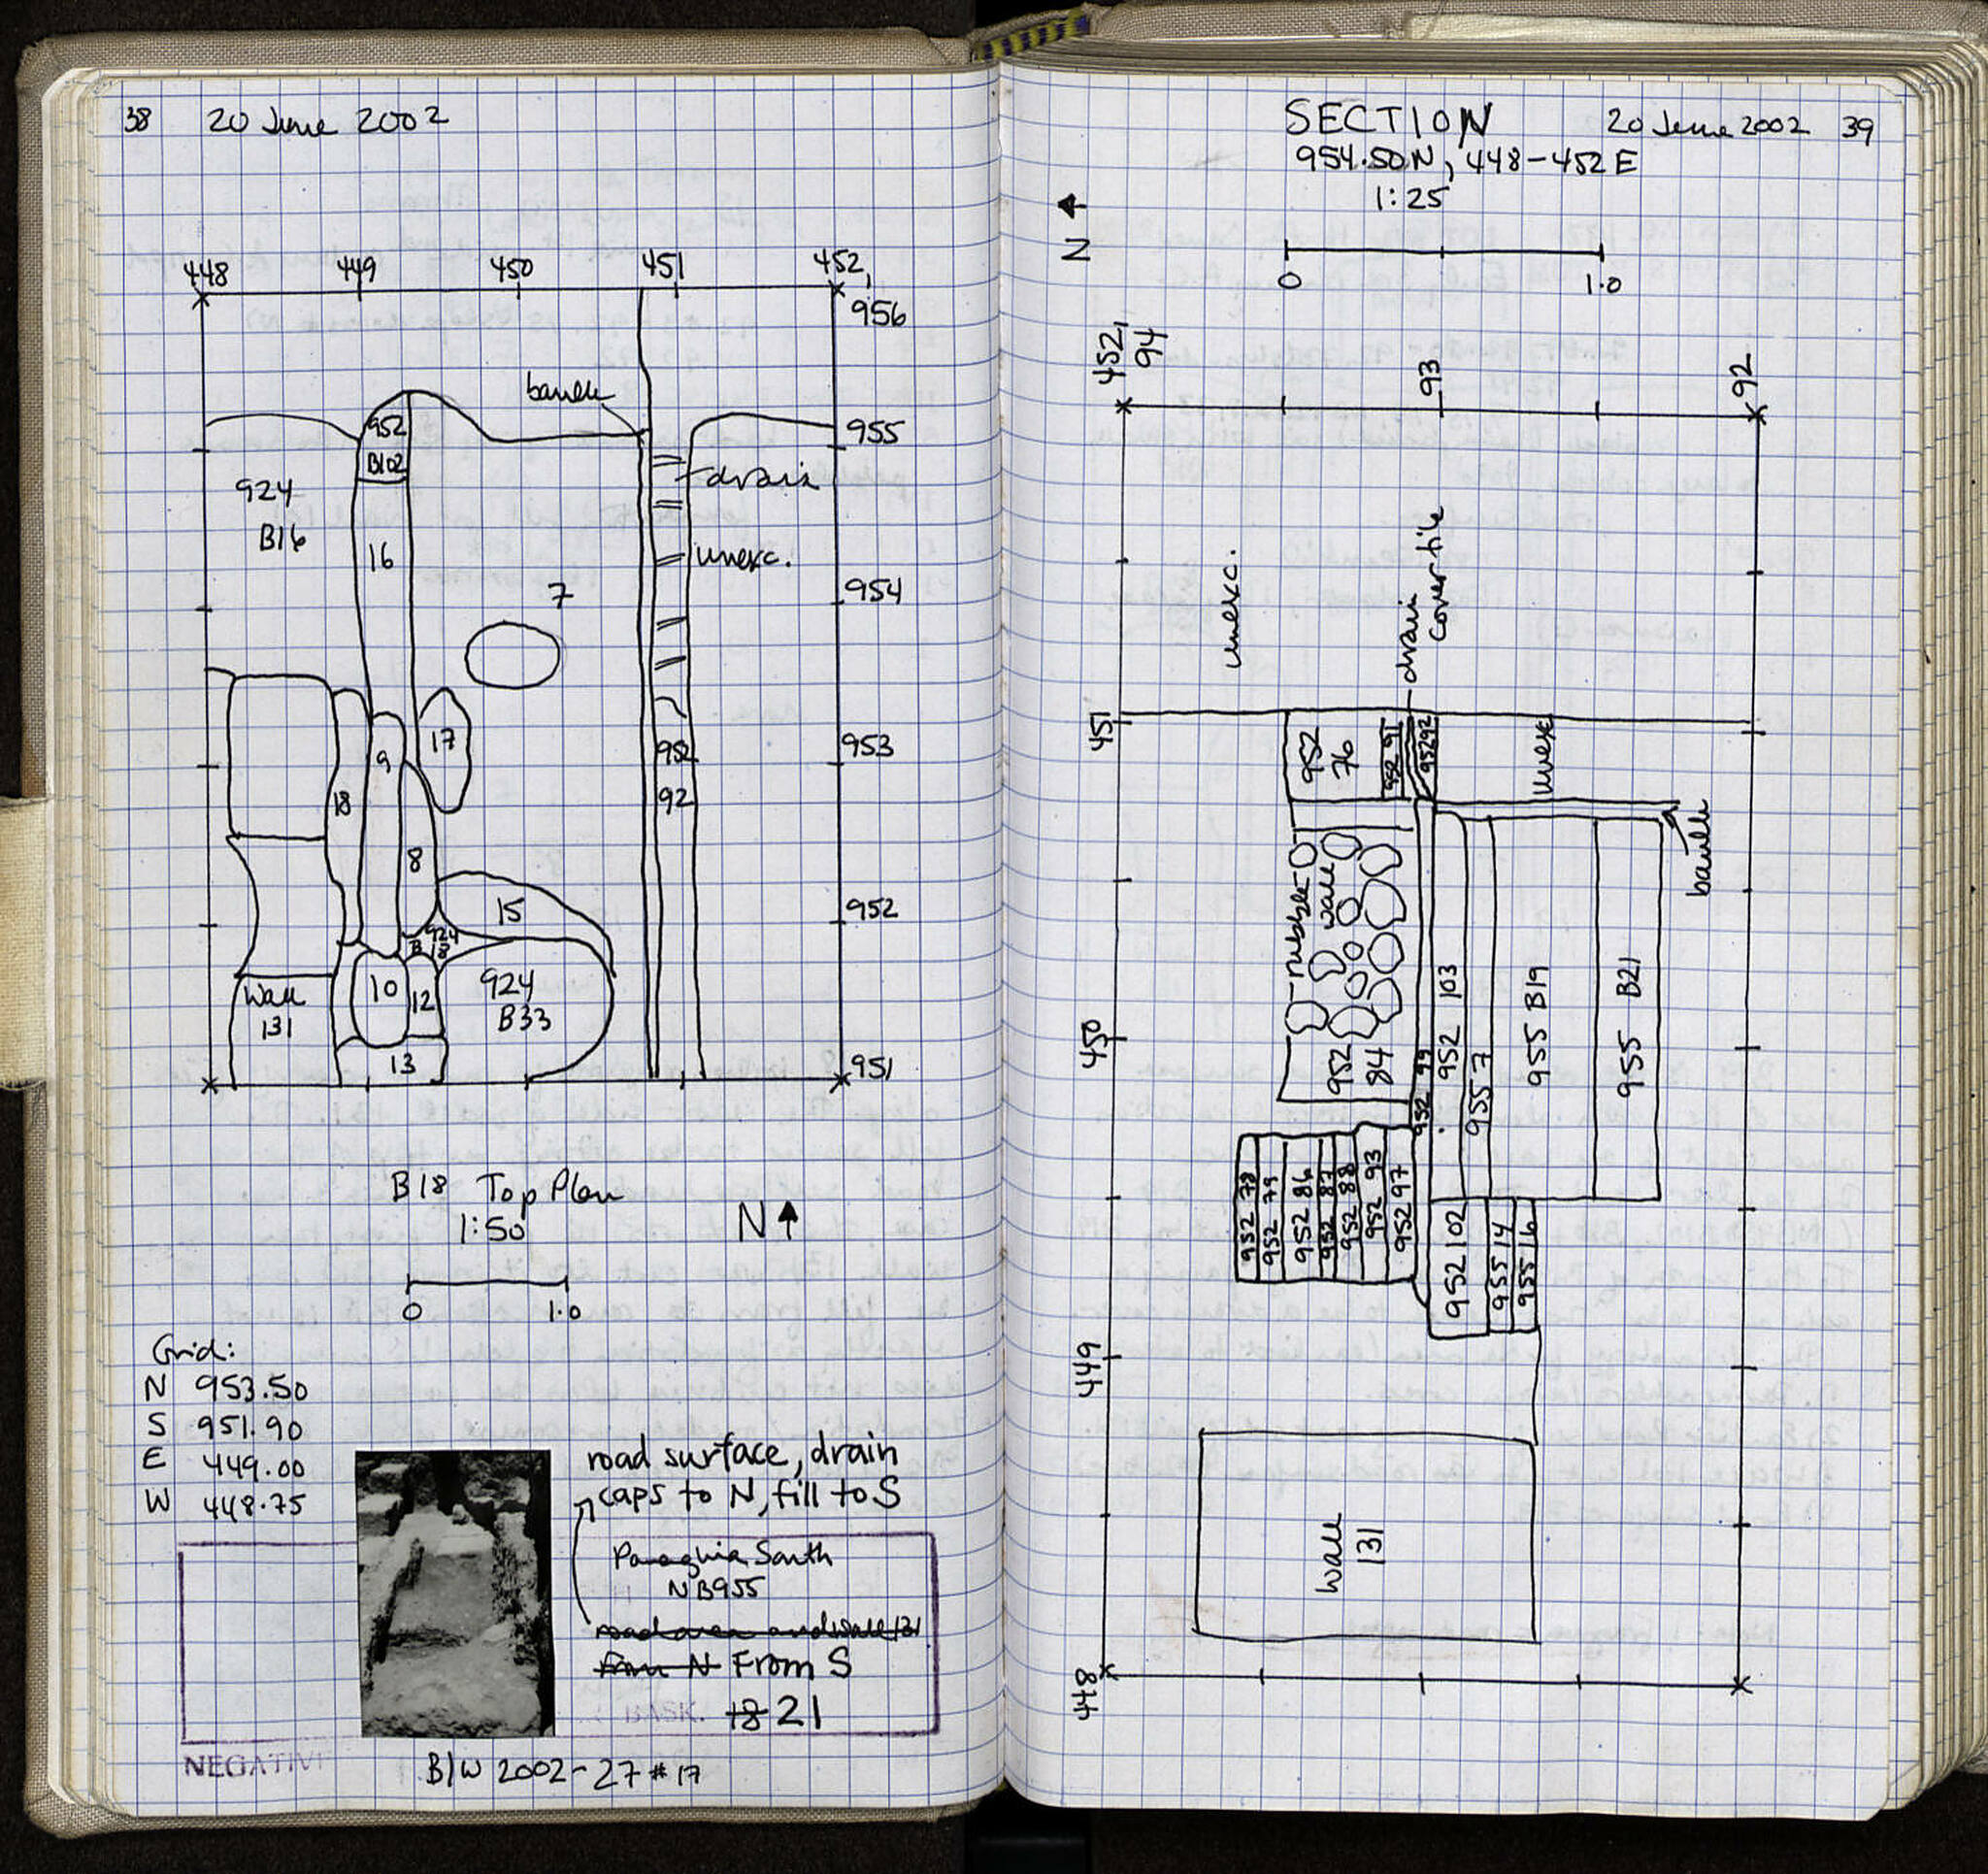 38 20 June 2002
448 449 450 451 452
956
955
954
953
952
951
952
B102
baulk
drain
unexc.
924
B16
16
7
17
9
18
8
15
952
92
924
B
10
12
924
B33
Wall
131
13
B18 Top Plan
1:50
N
0 1.0
Grid:
N 953.50
S 951.90
E 449.00
W 448.75
road surface, drain
caps to N, fill to S
Panaghia South
NB955
road area and wall 131
From N From S
18 21
BASK.
NEGATIV
B/W 2002-27 #17
SECTION 20 June 2002 39
954.50N, 448-452 E
1:25
N
0 1.0
452
94
93
92
unexc.
drain
cover tile
451
952
76
952 91
952 92
unexc
baulk
rubble
wall
450
952
84
952 99
952 103
955 7
955 B19
955 B21
952 78
952 79
952 86
952 87
952 88
952 93
952 97
952 102
955 14
955 16
449
Wall
131
448